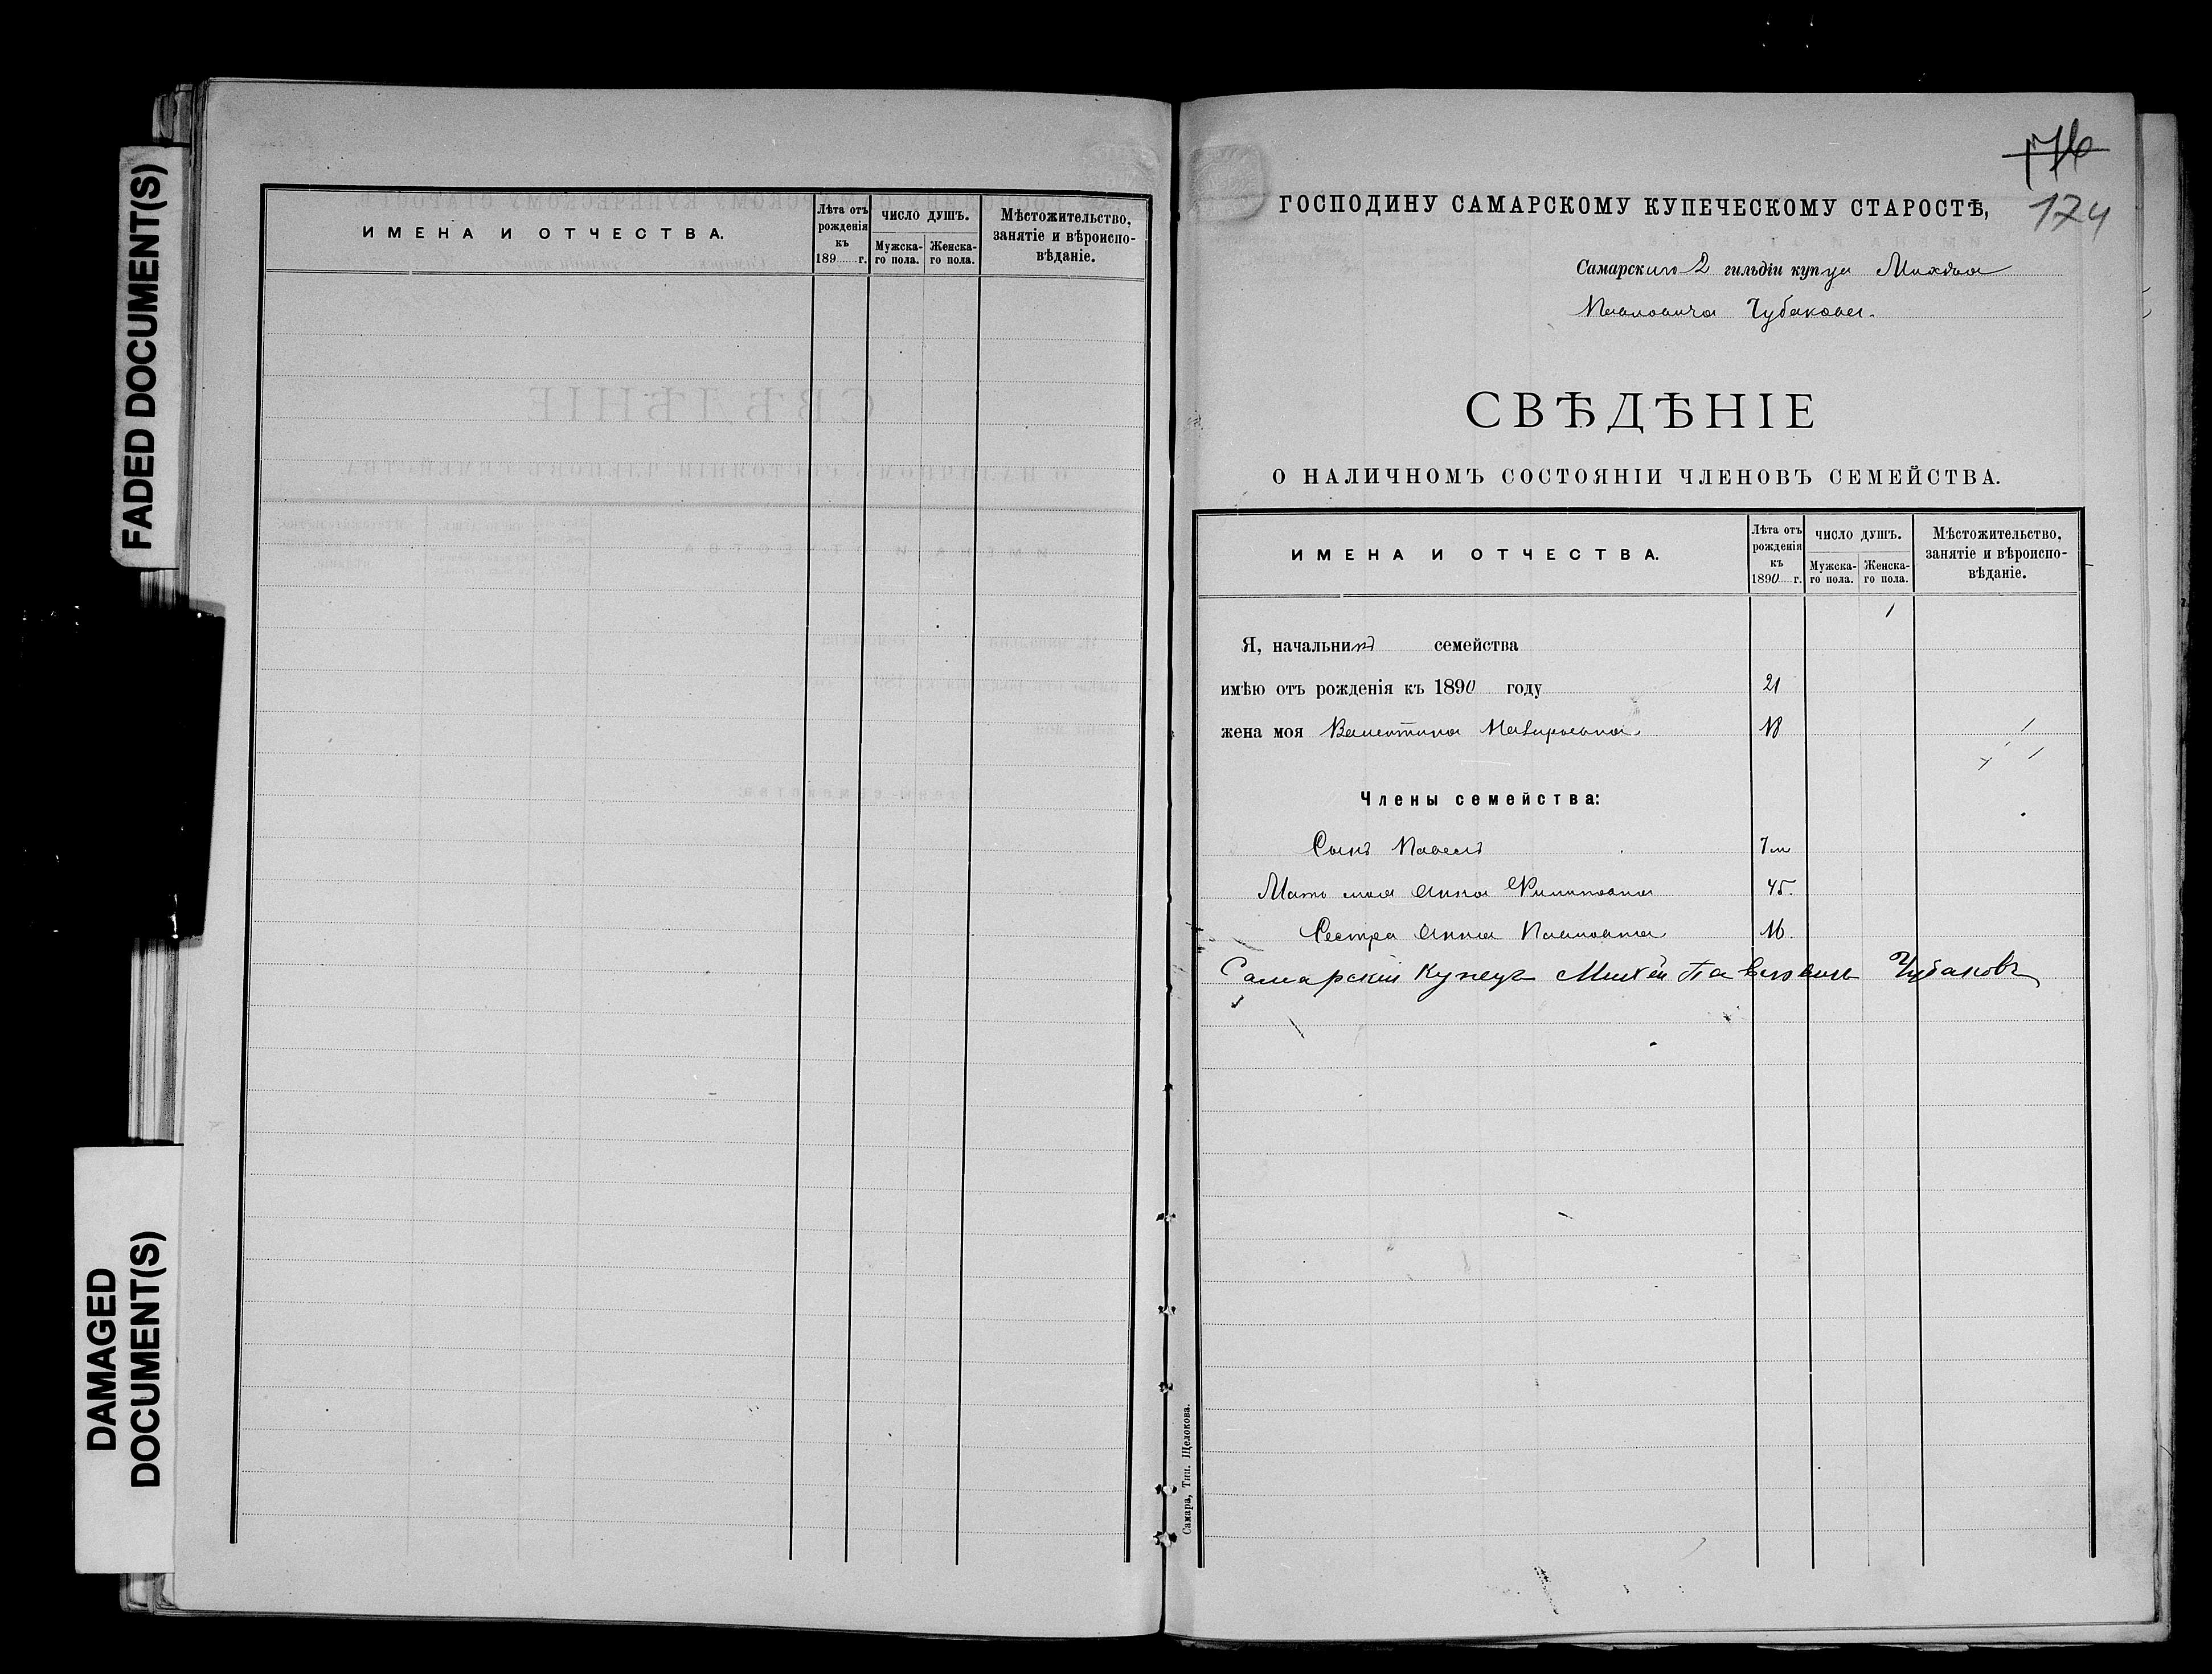 FADED DOCUMENT(S)
DAMAGED
DOCUMENT(S)
ИМЕНА И ОТЧЕСТВА.
Лѣта отъ рожденія къ 189 г.
ЧИСЛО ДУШЪ.
Мужска-го пола.
Женска-го пола.
Мѣстожительство, занятіе и вѣроиспо-вѣданіе.
176
174
ГОСПОДИНУ САМАРСКОМУ КУПЕЧЕСКОМУ СТАРОСТѢ,
Самарскаго 2 гильдіи купца Михѣя
Павловича Чубакова.
СВѢДѢНІЕ
О НАЛИЧНОМЪ СОСТОЯНІИ ЧЛЕНОВЪ СЕМЕЙСТВА.
ИМЕНА И ОТЧЕСТВА.
Лѣта отъ рожденія къ 1890 г.
ЧИСЛО ДУШЪ.
Мужска-го пола.
Женска-го пола.
Мѣстожительство, занятіе и вѣроиспо-вѣданіе.
Я, начальникъ семейства
имѣю отъ рожденія къ 1890 году 21
жена моя Валентина 18
Члены семейства:
Сынъ Павелъ 7 м
Мать моя Анна Филиповна 45.
Сестра Анна Павловна 16.
Самарскій Купецъ Михей Павловичь Чубаковъ
Самара, Тип. Щелокова.